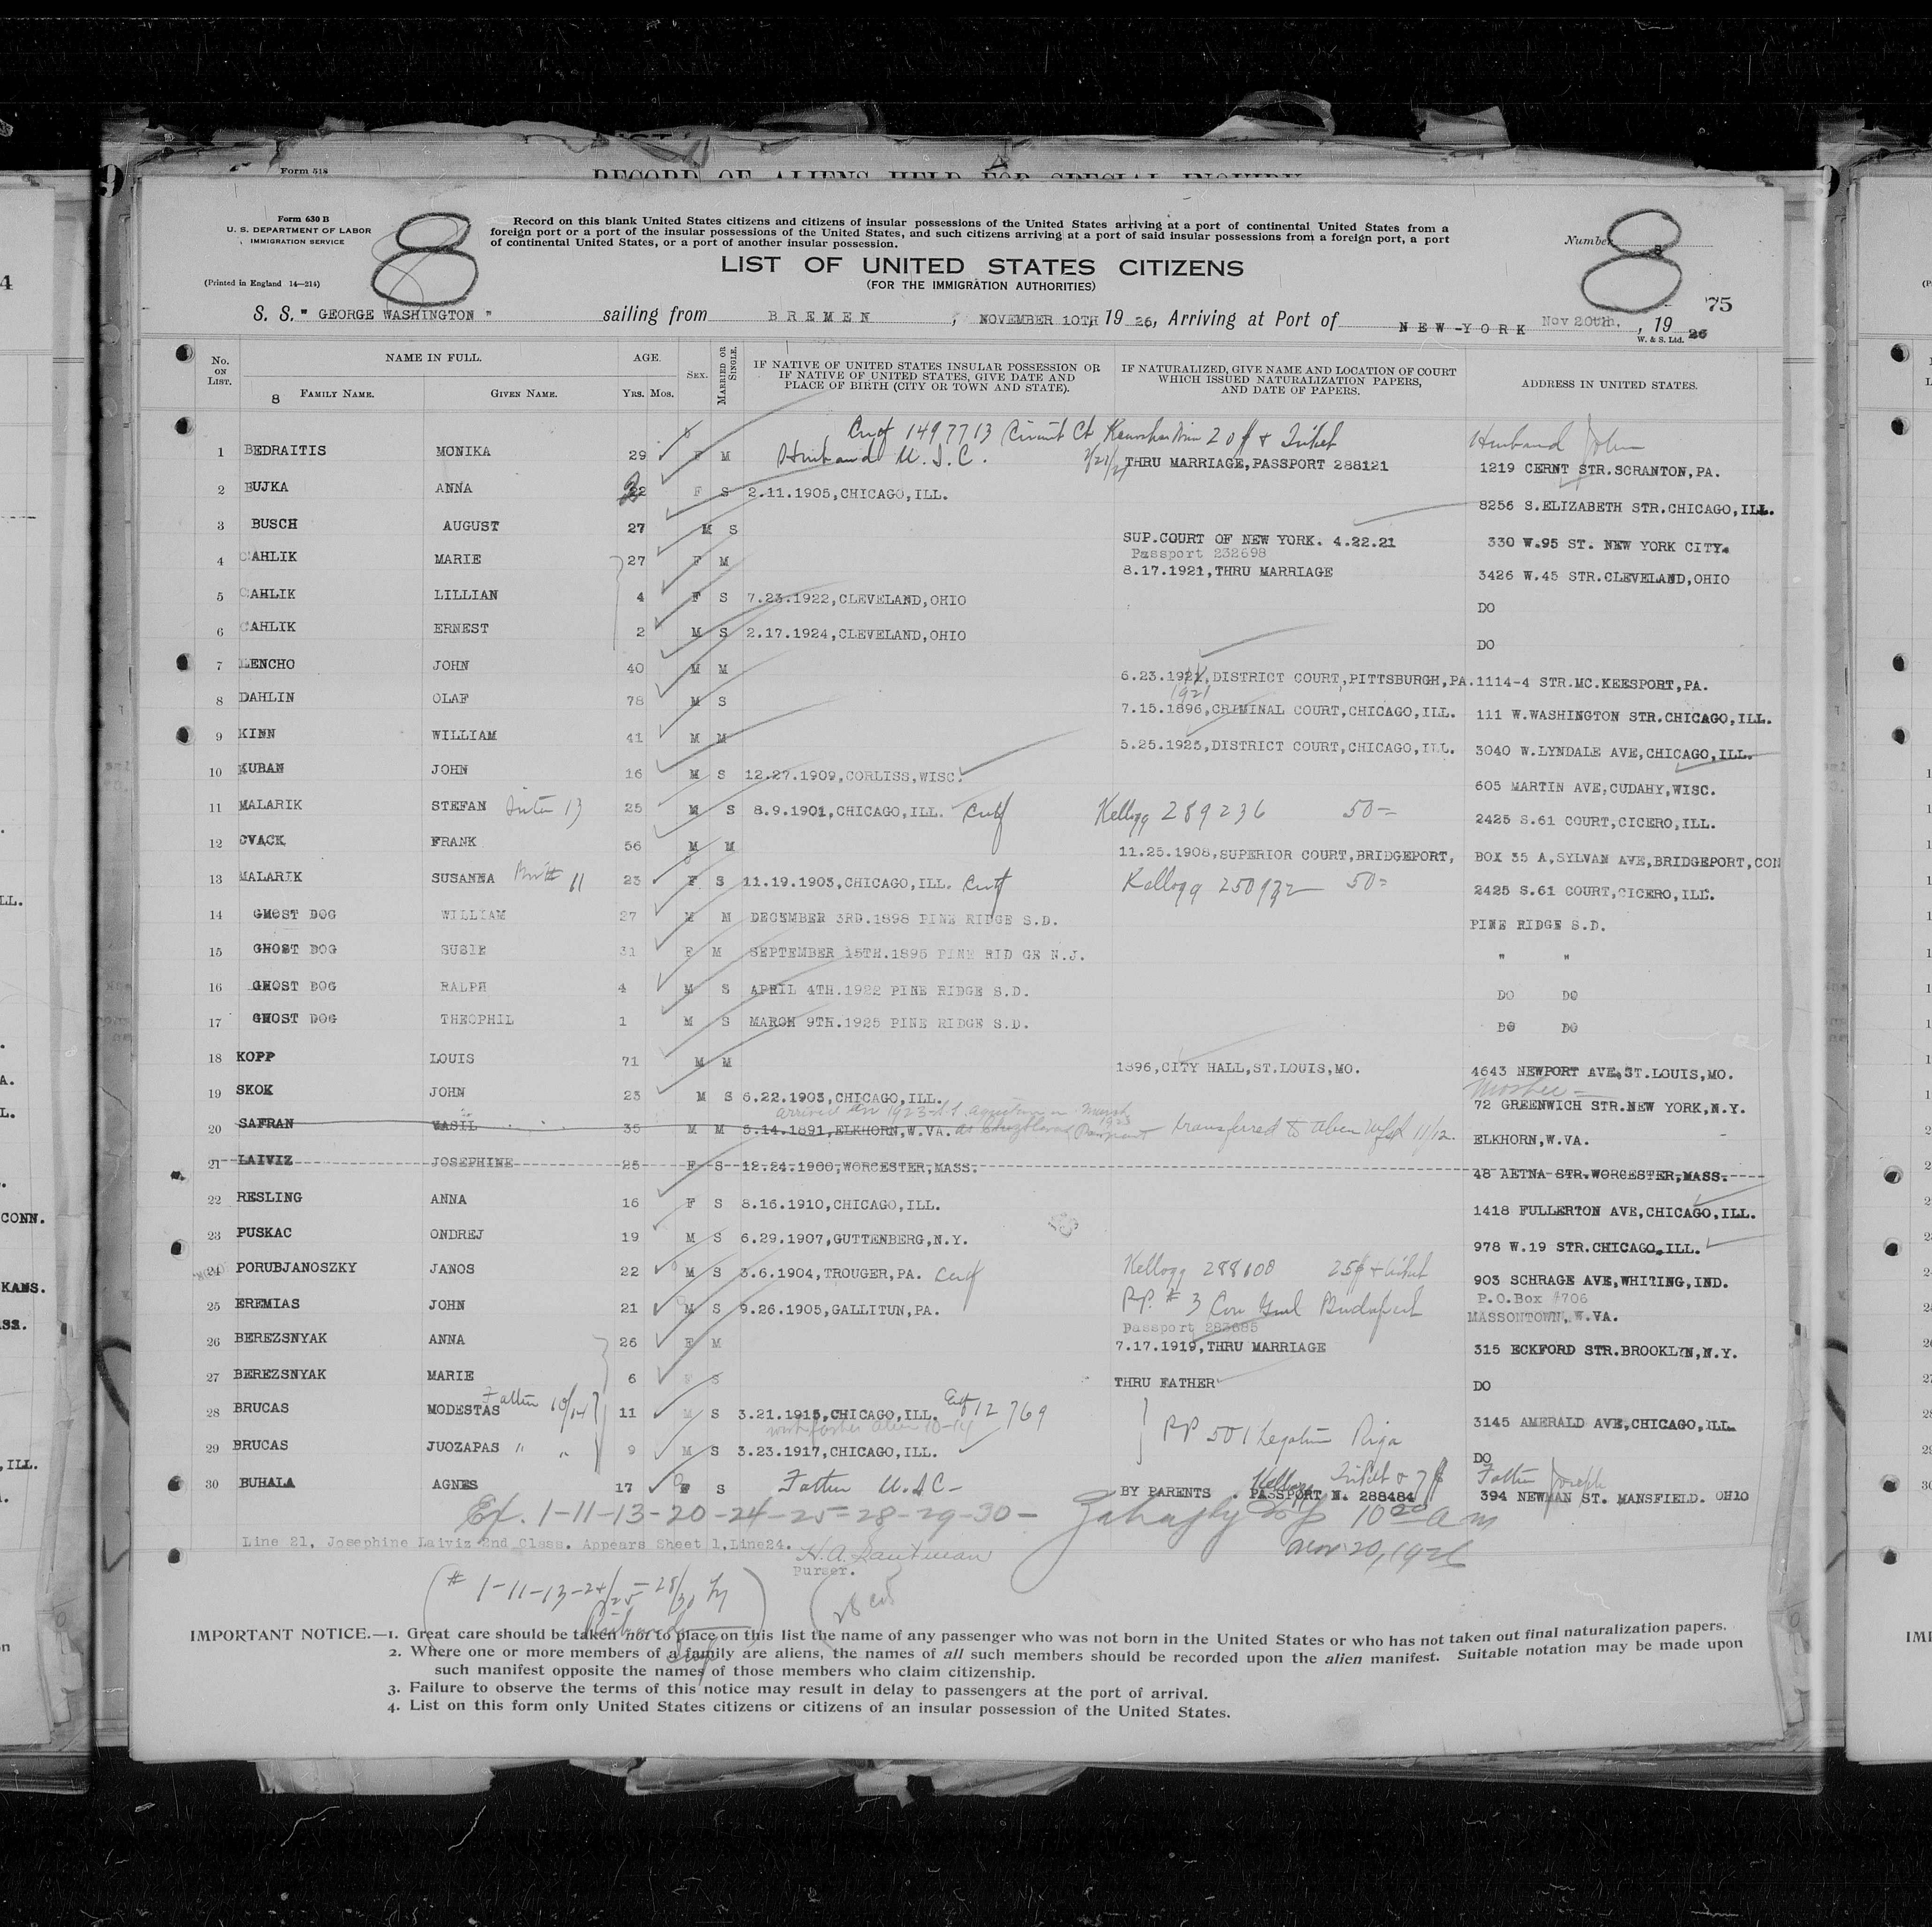 Form 518
RECORD OF ALIENS HELD FOR SPECIAL INQUIRY
Form 630 B
U. S. DEPARTMENT OF LABOR
IMMIGRATION SERVICE
(Printed in England 14—214)
8
Record on this blank United States citizens and citizens of insular possessions of the United States arriving at a port of continental United States from a
foreign port or a port of the insular possessions of the United States, and such citizens arriving at a port of said insular possessions from a foreign port, a port
of continental United States, or a port of another insular possession.
Number 8
8
LIST OF UNITED STATES CITIZENS
(FOR THE IMMIGRATION AUTHORITIES)
75
S. S. " GEORGE WASHINGTON " sailing from BREMEN, NOVEMBER 10TH, 1926, Arriving at Port of NEW-YORK Nov 20th., 1926
W. & S. Ltd.
No. ON LIST. NAME IN FULL. AGE. SEX. MARRIED OR SINGLE. IF NATIVE OF UNITED STATES INSULAR POSSESSION OR IF NATIVE OF UNITED STATES, GIVE DATE AND PLACE OF BIRTH (CITY OR TOWN AND STATE). IF NATURALIZED, GIVE NAME AND LOCATION OF COURT WHICH ISSUED NATURALIZATION PAPERS, AND DATE OF PAPERS. ADDRESS IN UNITED STATES.
8 FAMILY NAME. GIVEN NAME. YRS. MOS.
Ctf 1497713 Circuit Ct Kenosha Wis 20 $ + Ticket Husband John
1 BEDRAITIS MONIKA 29 F M Husband U.S.C. THRU MARRIAGE, PASSPORT 288121 1219 CERNT STR.SCRANTON,PA.
2 BUJKA ANNA 22 F S 2.11.1905,CHICAGO,ILL. 8256 S.ELIZABETH STR.CHICAGO,ILL.
3 BUSCH AUGUST 27 M S SUP.COURT OF NEW YORK. 4.22.21 330 W.95 ST. NEW YORK CITY.
Passport 232698
4 CAHLIK MARIE 27 F M 8.17.1921,THRU MARRIAGE 3426 W.45 STR.CLEVELAND,OHIO
5 CAHLIK LILLIAN 4 F S 7.23.1922,CLEVELAND,OHIO DO
6 CAHLIK ERNEST 2 M S 2.17.1924,CLEVELAND,OHIO DO
7 LENCHO JOHN 40 M M 6.23.1921,DISTRICT COURT,PITTSBURGH,PA. 1114-4 STR.MC.KEESPORT,PA.
1921
8 DAHLIN OLAF 78 M S 7.15.1896,CRIMINAL COURT,CHICAGO,ILL. 111 W.WASHINGTON STR.CHICAGO,ILL.
9 KINN WILLIAM 41 M M 5.25.1925,DISTRICT COURT,CHICAGO,ILL. 3040 W.LYNDALE AVE,CHICAGO,ILL.
10 KUBAN JOHN 16 M S 12.27.1909,CORLISS,WISC. 605 MARTIN AVE,CUDAHY,WISC.
11 MALARIK STEFAN Sister 13 25 M S 8.9.1901,CHICAGO,ILL. Ctf Kellogg 289236 50= 2425 S.61 COURT,CICERO,ILL.
12 CVACK FRANK 56 M M 11.25.1908,SUPERIOR COURT,BRIDGEPORT, BOX 35 A,SYLVAN AVE,BRIDGEPORT,CON
13 MALARIK SUSANNA 11 23 F S 11.19.1903,CHICAGO,ILL. Ctf Kellogg 50= 2425 S.61 COURT,CICERO,ILL.
14 GHOST DOG WILLIAM 27 M M DECEMBER 3RD.1898 PINE RIDGE S.D. PINE RIDGE S.D.
15 GHOST DOG SUSIE 31 F M SEPTEMBER 15TH.1895 PINE RID GE N.J. " "
16 GHOST DOG RALPH 4 M S APRIL 4TH.1922 PINE RIDGE S.D. DO DO
17 GHOST DOG THEOPHIL 1 M S MARCH 9TH.1925 PINE RIDGE S.D. DO DO
18 KOPP LOUIS 71 M M 1896,CITY HALL,ST.LOUIS,MO. 4643 NEWPORT AVE,ST.LOUIS,MO.
19 SKOK JOHN 23 M S 6.22.1903,CHICAGO,ILL. 72 GREENWICH STR.NEW YORK,N.Y.
arrived in 1923 March 1923
20 SAFRAN VASIL 35 M M 5.14.1891,ELKHORN,W.VA. transferred to alien 11/12. ELKHORN,W.VA.
21 LAIVIZ JOSEPHINE 25 F S 12.24.1900,WORCESTER,MASS. 48 AETNA STR.WORCESTER,MASS.
22 RESLING ANNA 16 F S 8.16.1910,CHICAGO,ILL. 1418 FULLERTON AVE,CHICAGO,ILL.
23 PUSKAC ONDREJ 19 M S 6.29.1907,GUTTENBERG,N.Y. 978 W.19 STR.CHICAGO.ILL.
24 PORUBJANOSZKY JANOS 22 M S 3.6.1904,TROUGER,PA. Ctf Kellogg 288100 25$ + ticket 903 SCHRAGE AVE,WHITING,IND.
P.O.Box #706
25 EREMIAS JOHN 21 M S 9.26.1905,GALLITUN,PA. P.P. # 3 Con Genl Budapest MASSONTOWN,W.VA.
Passport 283685
26 BEREZSNYAK ANNA 26 F M 7.17.1919,THRU MARRIAGE 315 ECKFORD STR.BROOKLYN,N.Y.
27 BEREZSNYAK MARIE 6 F S THRU FATHER DO
28 BRUCAS MODESTAS Father 10/14 11 M S 3.21.1915,CHICAGO,ILL. Ctf 12769 3145 AMERALD AVE,CHICAGO,ILL.
with father alien 10-14 PP 501 Legation Riga
29 BRUCAS JUOZAPAS " " 9 M S 3.23.1917,CHICAGO,ILL. DO
Kellogg Ticket & 7 $ Father Joseph
30 BUHALA AGNES 17 F S Father U.S.C. BY PARENTS . PASSPORT N. 288484 394 NEWMAN ST. MANSFIELD. OHIO
Ex. 1-11-13-20-24-25-28-29-30- 10 20 a m
Nov 20, 1926
Line 21, Josephine Laiviz 2nd Class. Appears Sheet 1,Line24.
H.A. Lautman
Purser.
(# 1-11-13-24/25-28/30
IMPORTANT NOTICE.—1. Great care should be taken not to place on this list the name of any passenger who was not born in the United States or who has not taken out final naturalization papers.
2. Where one or more members of a family are aliens, the names of all such members should be recorded upon the alien manifest. Suitable notation may be made upon
such manifest opposite the names of those members who claim citizenship.
3. Failure to observe the terms of this notice may result in delay to passengers at the port of arrival.
4. List on this form only United States citizens or citizens of an insular possession of the United States.